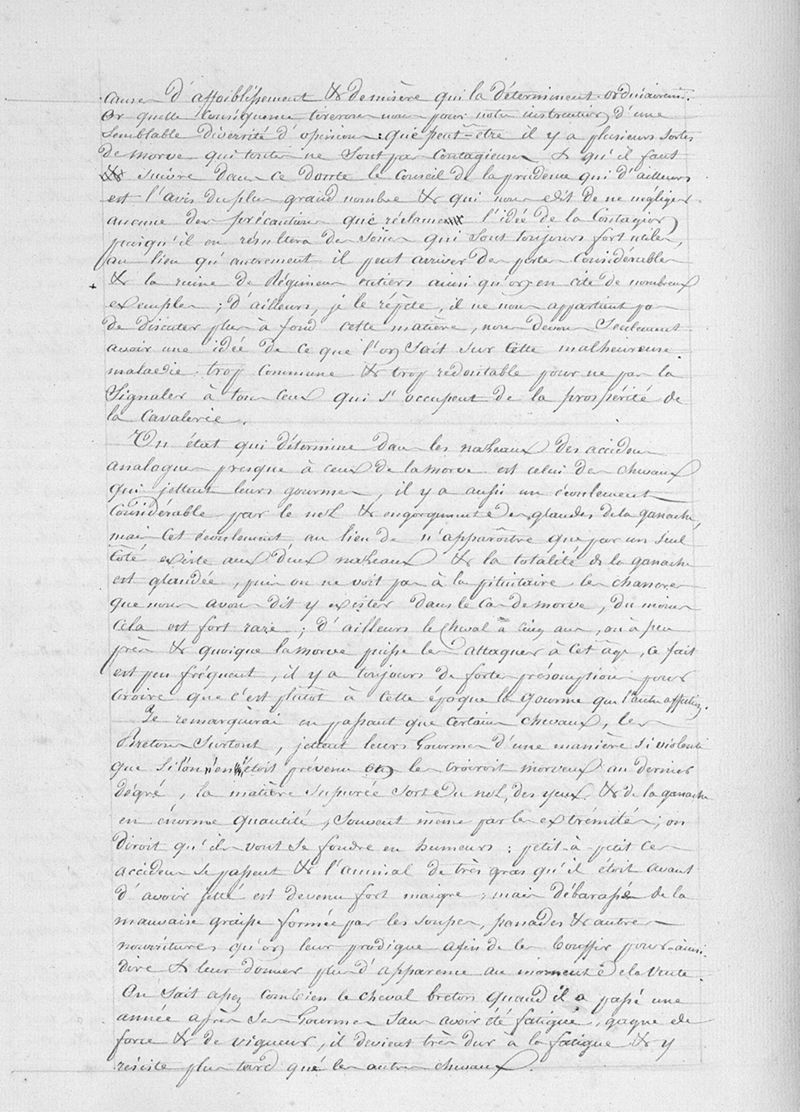 causes d'affoiblissement & de misère qui la déterminent ordinairemt.
Or quelle conséquence tirerons nous pour notre instruction d'une
semblable diversité d'opinion : que peut-être il y a plusieurs sortes
de morve qui toutes ne sont pas contagieuses & qu'il faut
suivre dans ce doute le conseil de la prudence qui d'ailleurs
est l'avis du plus grand nombre & qui nous dit de ne négliger
aucune des précautions que réclame l'idée de la contagion
puisqu'il en résultera des soins qui sont toujours fort utiles,
au lieu qu'autrement il peut arriver des pertes considérables
& la ruine de Régimens entiers ainsi qu'on en cite de nombreux
exemples ; d'ailleurs, je le répète, il ne nous appartient pas
de discuter plus à fond cette matière, nous devons seulement
avoir une idée de ce que l'on sait sur cette malheureuse
maladie trop commune & trop redoutable pour ne pas la
signaler à tous ceux qui s'occupent de la prospérité de
la Cavalerie.
Un état qui détermine dans les naseaux des accidens
analogues presque à ceux de la morve est celui des chevaux
qui jettent leurs gourmes, il y a aussi un écoulement
considérable par le nez & engorgement des glandes de la ganache,
mais cet écoulement au lieu de n'apparoître que par un seul
côté existe aux deux naseaux & la totalité de la ganache
est glandée, puis on ne voit pas à la pituitaire les chancres
que nous avons dit y exister dans le cas de morve, du moins
cela est fort rare ; d'ailleurs le cheval a cinq ans, ou à peu
près & quoique la morve puisse les attaquer à cet age, ce fait
est peu fréquent, il y a toujours de fortes présomptions pour
croire que c'est plutôt à cette époque la gourme que l'autre affection.
Je remarquerai en passant que certains chevaux, les
Bretons surtout, jettent leurs Gourmes d'une manière si violente
que si l'on n'en étoit prévenu on les croiroit morveux au dernier
dégré, la matière supurée sort du nez, des yeux & de la ganache
en énorme quantité, souvent même par les extrémités ; on
diroit qu'ils vont se fondre en humeurs : petit-à-petit ces
accidens se passent & l'animal de très gras qu'il étoit avant
d'avoir jetté est devenu fort maigre ; mais débarassé de la
mauvaise graisse formée par les soupes, panades & autres
nourritures qu'on leur prodigue afin de les bouffir pour-ainsi
dire & leur donner plus d'apparence au moment de la vente.
On sait assez combien le cheval breton quand il a passé une
année après ses Gourmes sans avoir été fatigué, gagne de
force & de vigueur, il devient très dur à la fatigue & y
résiste plus tard que les autres chevaux.